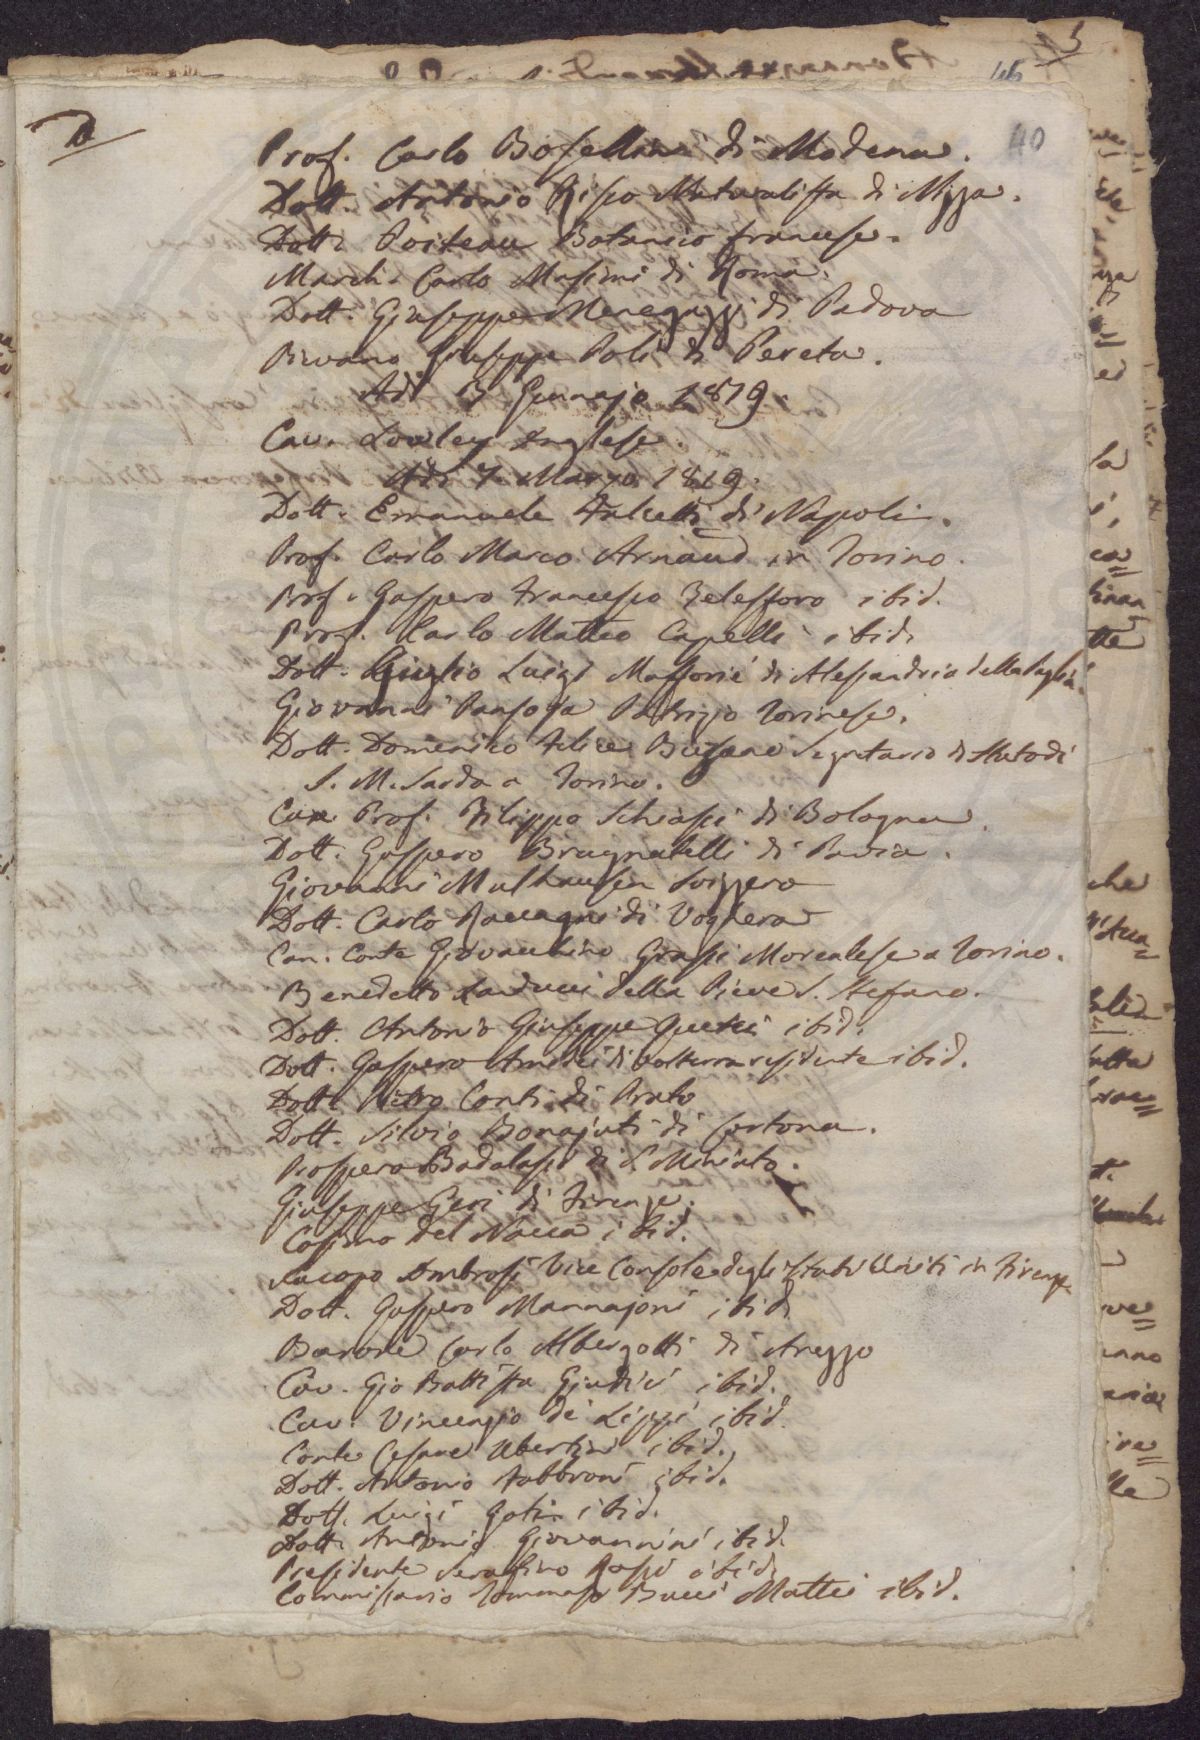 40
Prof. Carlo Bosellini di Modena.
Dott. Antonio Risso Naturalista di Nizza.
Dott. Poiteau Botanico francese.
March. Carlo Massimi di Roma.
Dott. Giuseppe Menegazzi di Padova
Pievano Giuseppe Poli di Pereta.
Adì 13 Gennajo 1819.
Cav. Lowley Inglese.
Adì 7 Marzo 1819.
Dott. Emanuele Falcetti di Napoli.
Prof. Carlo Marco Arnaud in Torino.
Prof. Gaspero Francesco ibid.
Prof. Carlo Matteo Capelli ibid.
Dott. Giuglio Luigi di Alessandria della Paglia.
Giovanni Pansoja Patrizio Torinese.
Dott. Domenico Felice Segretario di Stato di
S. M. Sarda a Torino.
Cav. Prof. Filippo Schiassi di Bologna.
Dott. Gaspero Brugnatelli di Pavia.
Giovanni Mulhausen Svizzero
Dott. Carlo di Voghera
Can. Conte Giovacchino Grassi a Torino.
Benedetto Landucci della Pieve S. Stefano.
Dott. Antonio Giuseppe ibid.
Dott. Gaspero Amidei di Volterra residente ibid.
Dott. Pietro Conti di Prato
Dott. Silvio Bonajuti di Cortona.
Prospero Badalassi di S. Miniato.
Giuseppe Geri di Firenze.
Cosimo del Nacca ibid.
Jacopo Ambrosi Vice Console degli Stati Uniti in Firenze.
Dott. Gaspero Mannajoni ibid.
Barone Carlo Albergotti di Arezzo
Cav. Gio Battista Giudici ibid.
Cav. Vincenzio de' Lippi ibid.
Conte Cesare Ubertini ibid.
Dott. Antonio Fabbroni ibid.
Dott. Luigi ibid.
Dott. Antonio Giovannini ibid.
Presidente Serafino Rossi ibid.
Commissario Tommaso Bucci Mattei ibid.